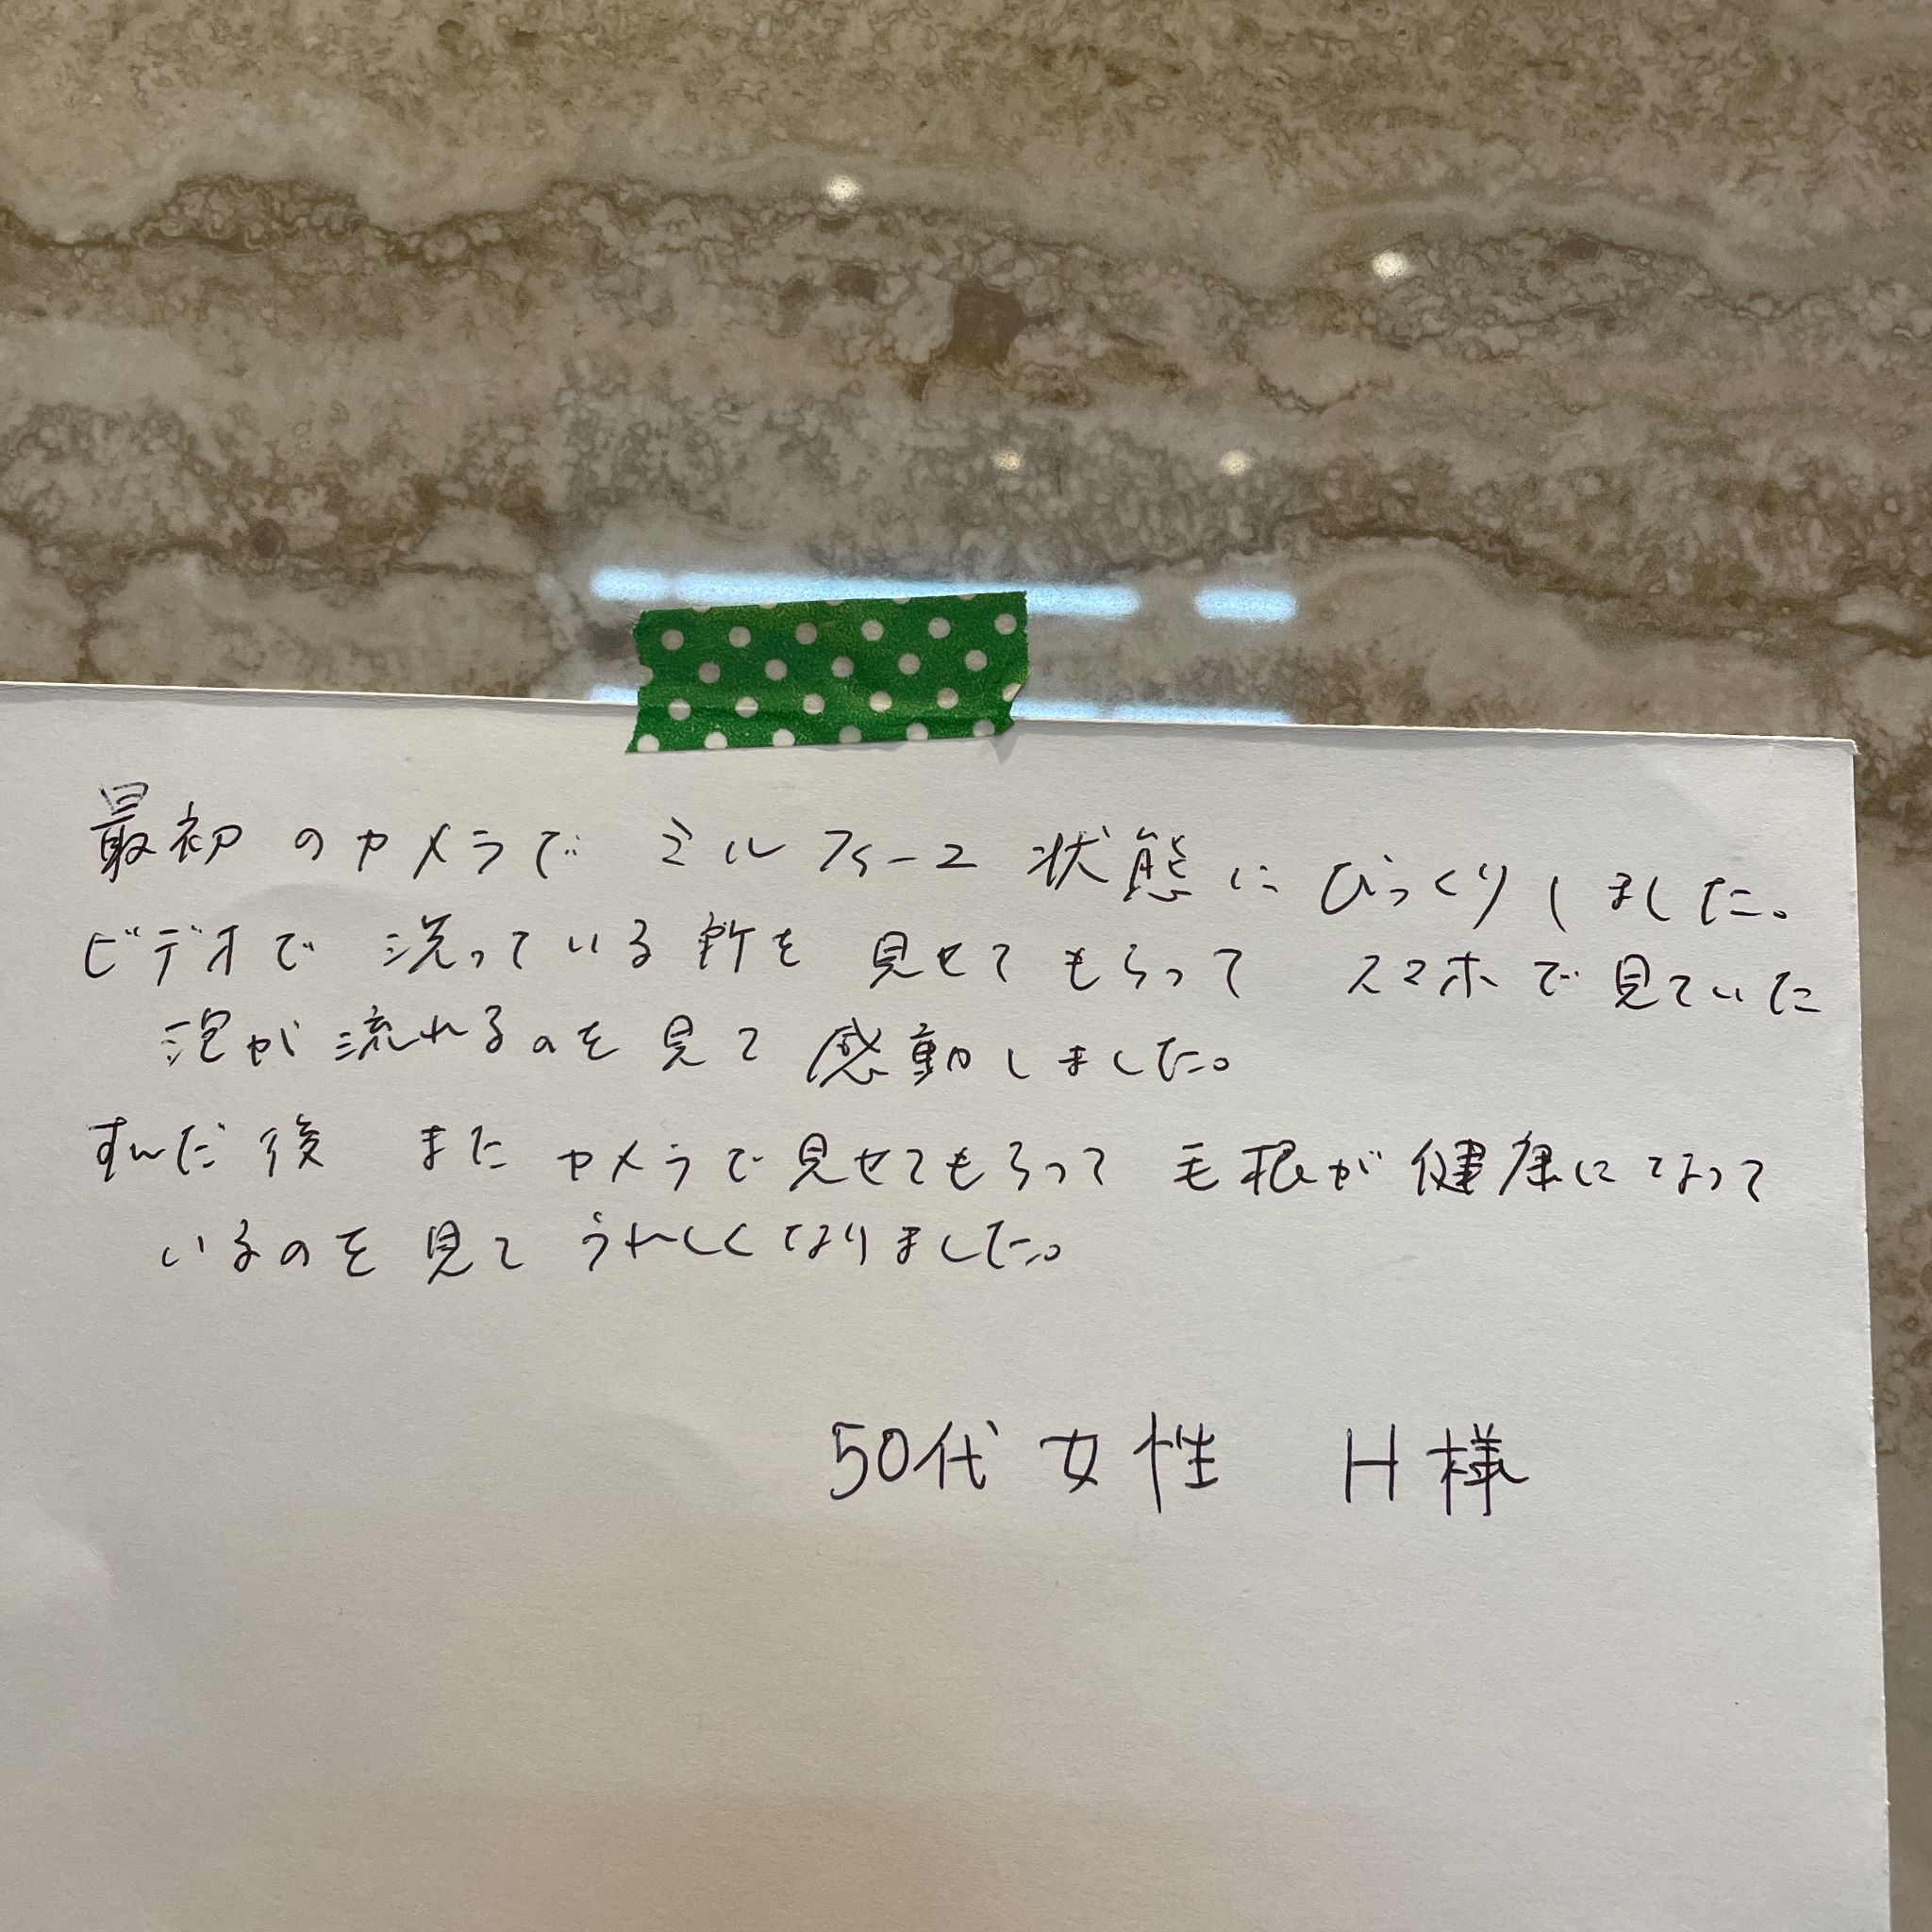 最初のカメラで ミルフィーユ 状態に びっくりしました。
ビデオで 洗っている所を 見せてもらって スマホで見ていた
泡が 流れるのを 見て 感動しました。
すんだ後 また カメラで見せてもらって 毛根が 健康になって
いるのを 見て うれしくなりました。
50代 女性 H様